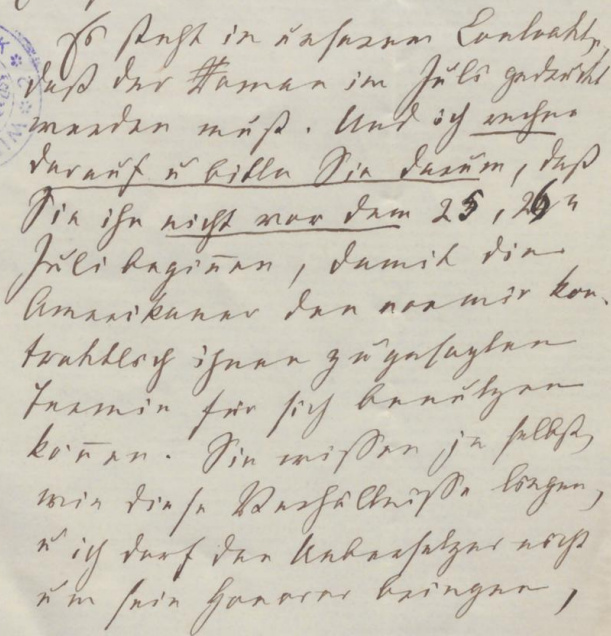 Es steht in unserem Contrakte,
daß der Roman im Juli gedruckt
werden muß. Und ich rechne
darauf u bitte Sie darum, daß
Sie ihn nicht vor dem 25, 26n
Juli beginnen, damit die
Amerikaner den von mir kon-
traktlich ihnen zugesagten
Termin für sich benutzen
können. Sie wissen ja selbst,
wie diese Verhältnisse liegen,
u ich darf den Uebersetzer nicht
um sein Honorar bringen,